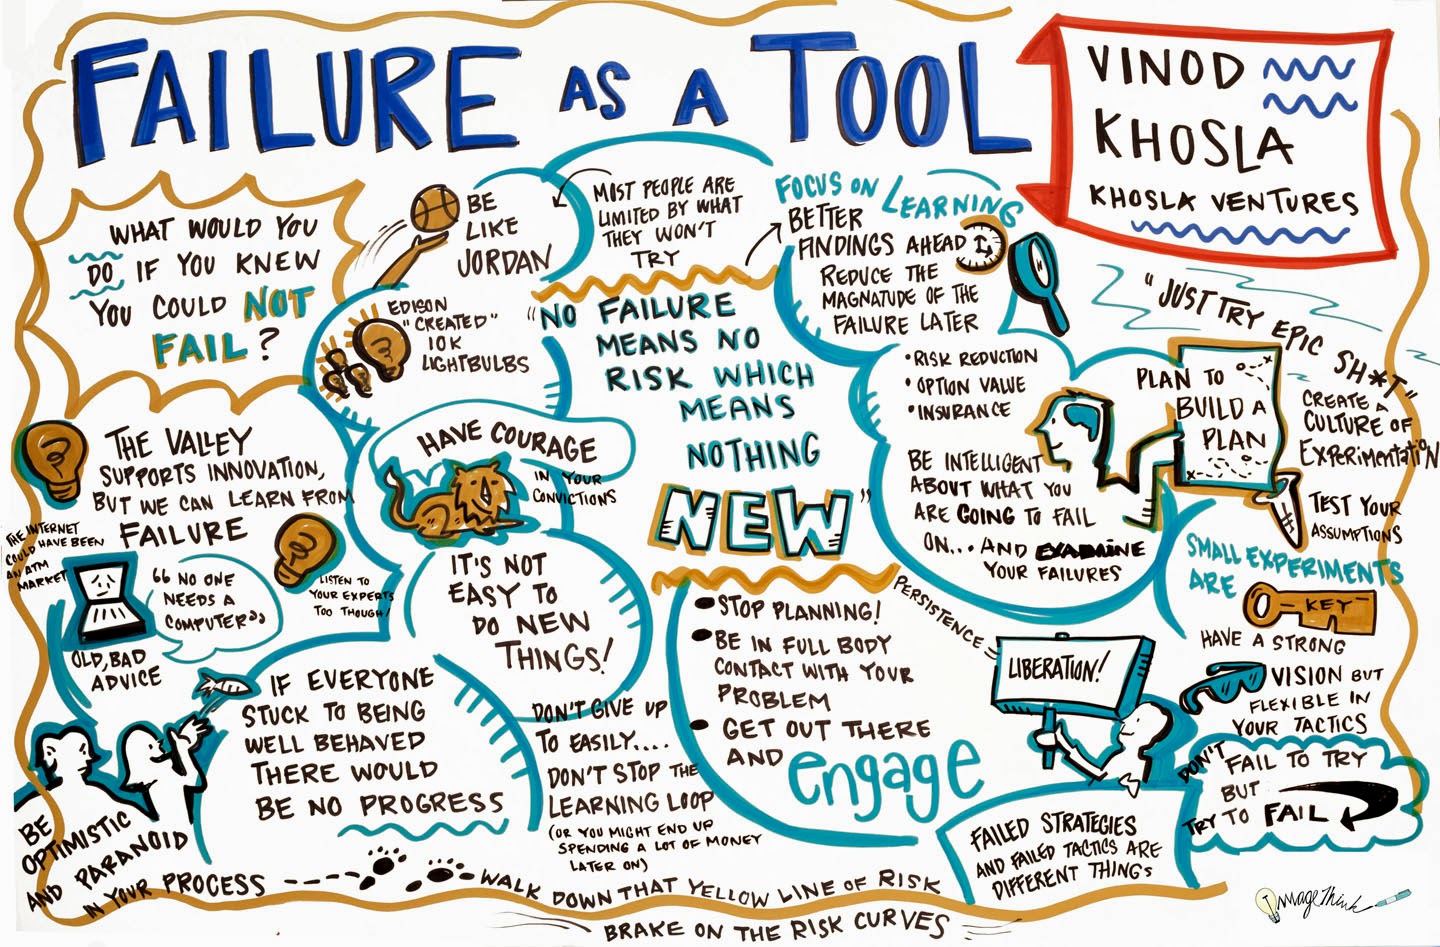 FAILURE AS A TOOL
VINOD
KHOSLA
KHOSLA VENTURES
WHAT WOULD YOU
DO, IF YOU KNEW
YOU COULD NOT
FAIL?
BE
LIKE
JORDAN
MOST PEOPLE ARE
LIMITED BY WHAT
THEY WON'T
TRY
EDISON
"CREATED"
10K
LIGHTBULBS
"NO FAILURE
MEANS NO
RISK WHICH
MEANS
NOTHING
NEW"
FOCUS ON LEARNING
BETTER
FINDINGS AHEAD
REDUCE THE
MAGNATUDE OF THE
FAILURE LATER
• RISK REDUCTION
• OPTION VALUE
• INSURANCE
BE INTELLIGENT
ABOUT WHAT YOU
ARE GOING TO FAIL
ON... AND EXAMINE
YOUR FAILURES
"JUST TRY EPIC SH*T"
PLAN TO
BUILD A
PLAN
CREATE A
CULTURE OF
EXPERIMENTATION
TEST YOUR
ASSUMPTIONS
THE VALLEY
SUPPORTS INNOVATION,
BUT WE CAN LEARN FROM
FAILURE
THE INTERNET
COULD HAVE BEEN
AN ATM
MARKET
"NO ONE
NEEDS A
COMPUTER"
OLD, BAD
ADVICE
LISTEN TO
YOUR EXPERTS
TOO THOUGH!
HAVE COURAGE
IN YOUR
CONVICTIONS
IT'S NOT
EASY TO
DO NEW
THINGS!
IF EVERYONE
STUCK TO BEING
WELL BEHAVED
THERE WOULD
BE NO PROGRESS
BE
OPTIMISTIC
AND PARANOID
IN YOUR PROCESS
DON'T GIVE UP
TO EASILY....
DON'T STOP THE
LEARNING LOOP
(OR YOU MIGHT END UP
SPENDING A LOT OF MONEY
LATER ON)
• STOP PLANNING!
• BE IN FULL BODY
CONTACT WITH YOUR
PROBLEM
• GET OUT THERE
AND engage
PERSISTENCE
LIBERATION!
SMALL EXPERIMENTS
ARE
KEY
HAVE A STRONG
VISION BUT
FLEXIBLE IN
YOUR TACTICS
DON'T FAIL TO TRY
BUT
TRY TO FAIL
FAILED STRATEGIES
AND FAILED TACTICS ARE
DIFFERENT THINGS
WALK DOWN THAT YELLOW LINE OF RISK
BRAKE ON THE RISK CURVES
ImageThink